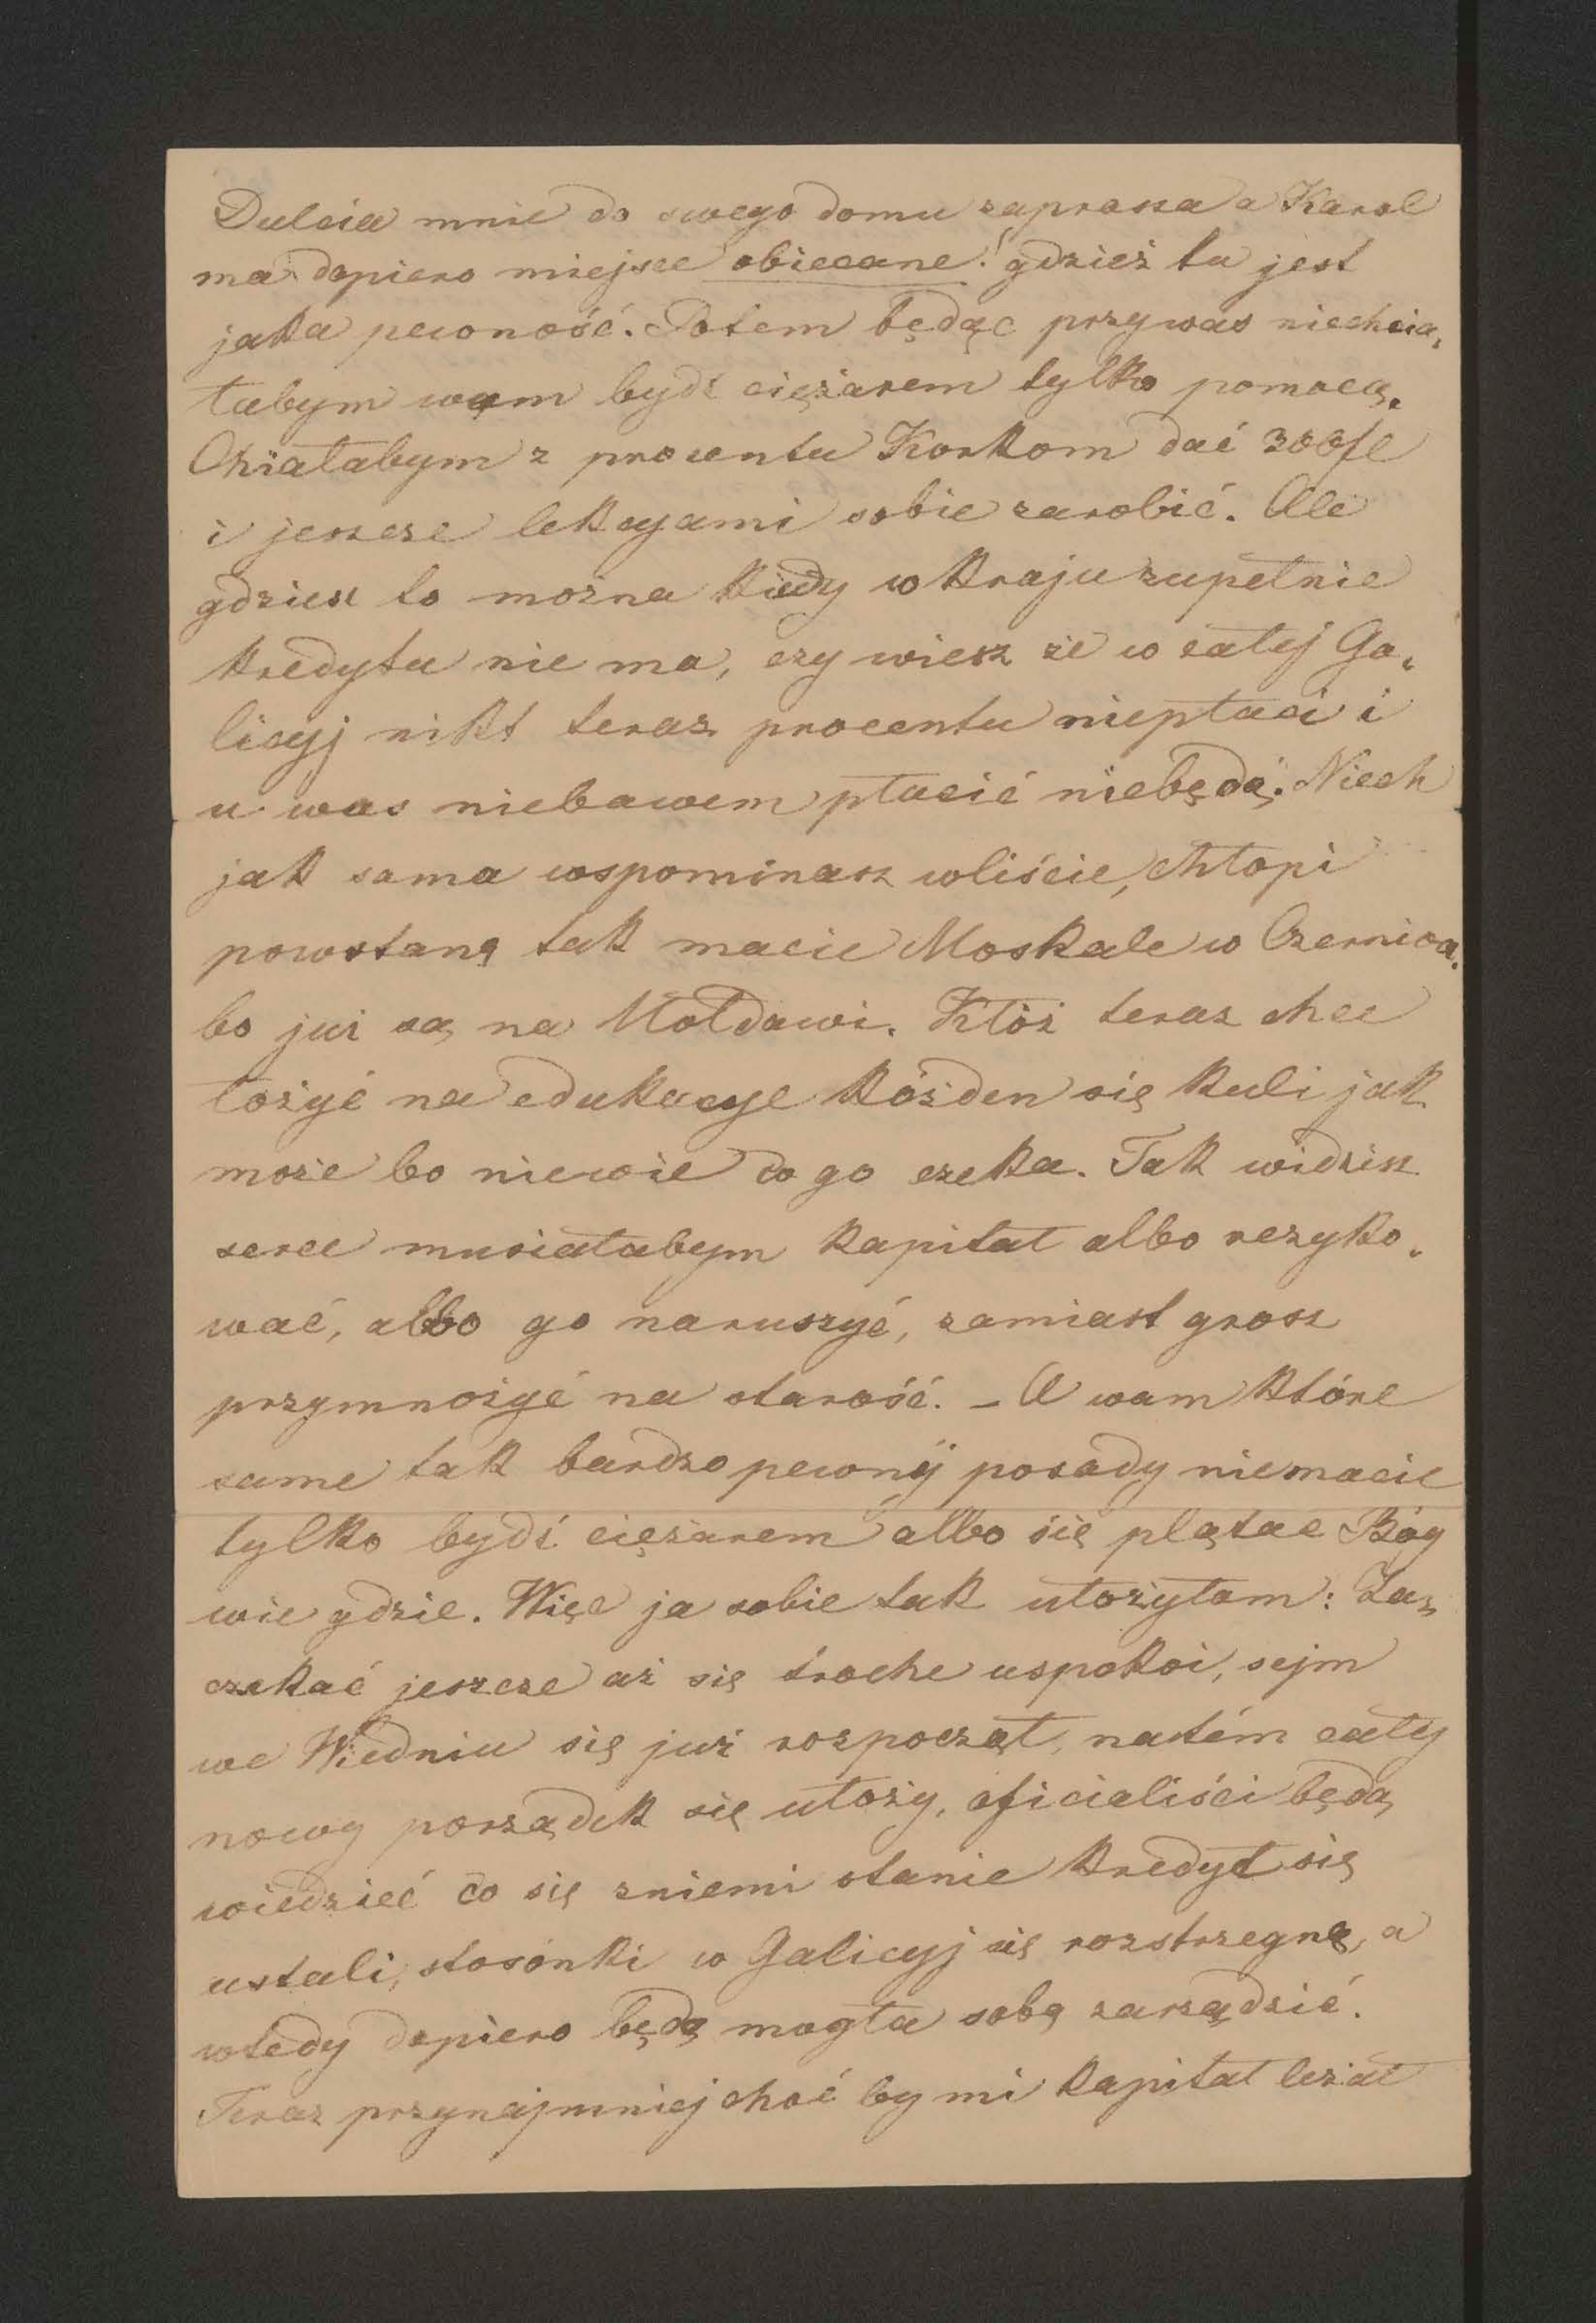 Dulcia mnie do swego domu zaprasza a Karol
ma dopiero miejsce obiecane! gdzież tu jest
jaka pewność. Potem będąc przy was niechcia,
łabym wam bydź ciężarem tylko pomocą.
Chciałabym z procentu Korkom dać 300 fl
i jeszcze lekcyami sobie zarobić. Ale
gdziesz to można kiedy w kraju zupełnie
kredytu nie ma, czy wiesz że w całej Ga,
licyj nikt teraz procentu niepłaci i
u was niebawem płacić niebędą. Niech
jak sama wspominasz wliście, chłopi
powstaną tak macie Moskale w Czerniow.
bo już są na Mołdawi. Któż teraz chce
łożyć na edukacye kóżden się kuli jak
może bo niewie co go czeka. Tak widzisz
serce musiałabym kapitał albo rezyko,
wać, albo go naruszyć, zamiast grosz
przymnożyć na starość. – A wam które
same tak bardzo pewnyj posady niemacie
tylko bydź ciężarem albo się plątac Bóg
wie gdzie. Więc ja sobie tak ułożyłam: Za,
czekać jeszcze aż się troche uspokoi, sejm
we Wiedniu się już rozpoczął, natém cały
nowy porządek się ułoży, oficialiści będą
wiedzieć co się zniemi stanie kredyt się
ustali, stosónki w Galicyj się rozstrzegną, a
wtedy dopiero będę mogła sobą zarządzić.
Teraz przynajmniej choć by mi kapitał leżał